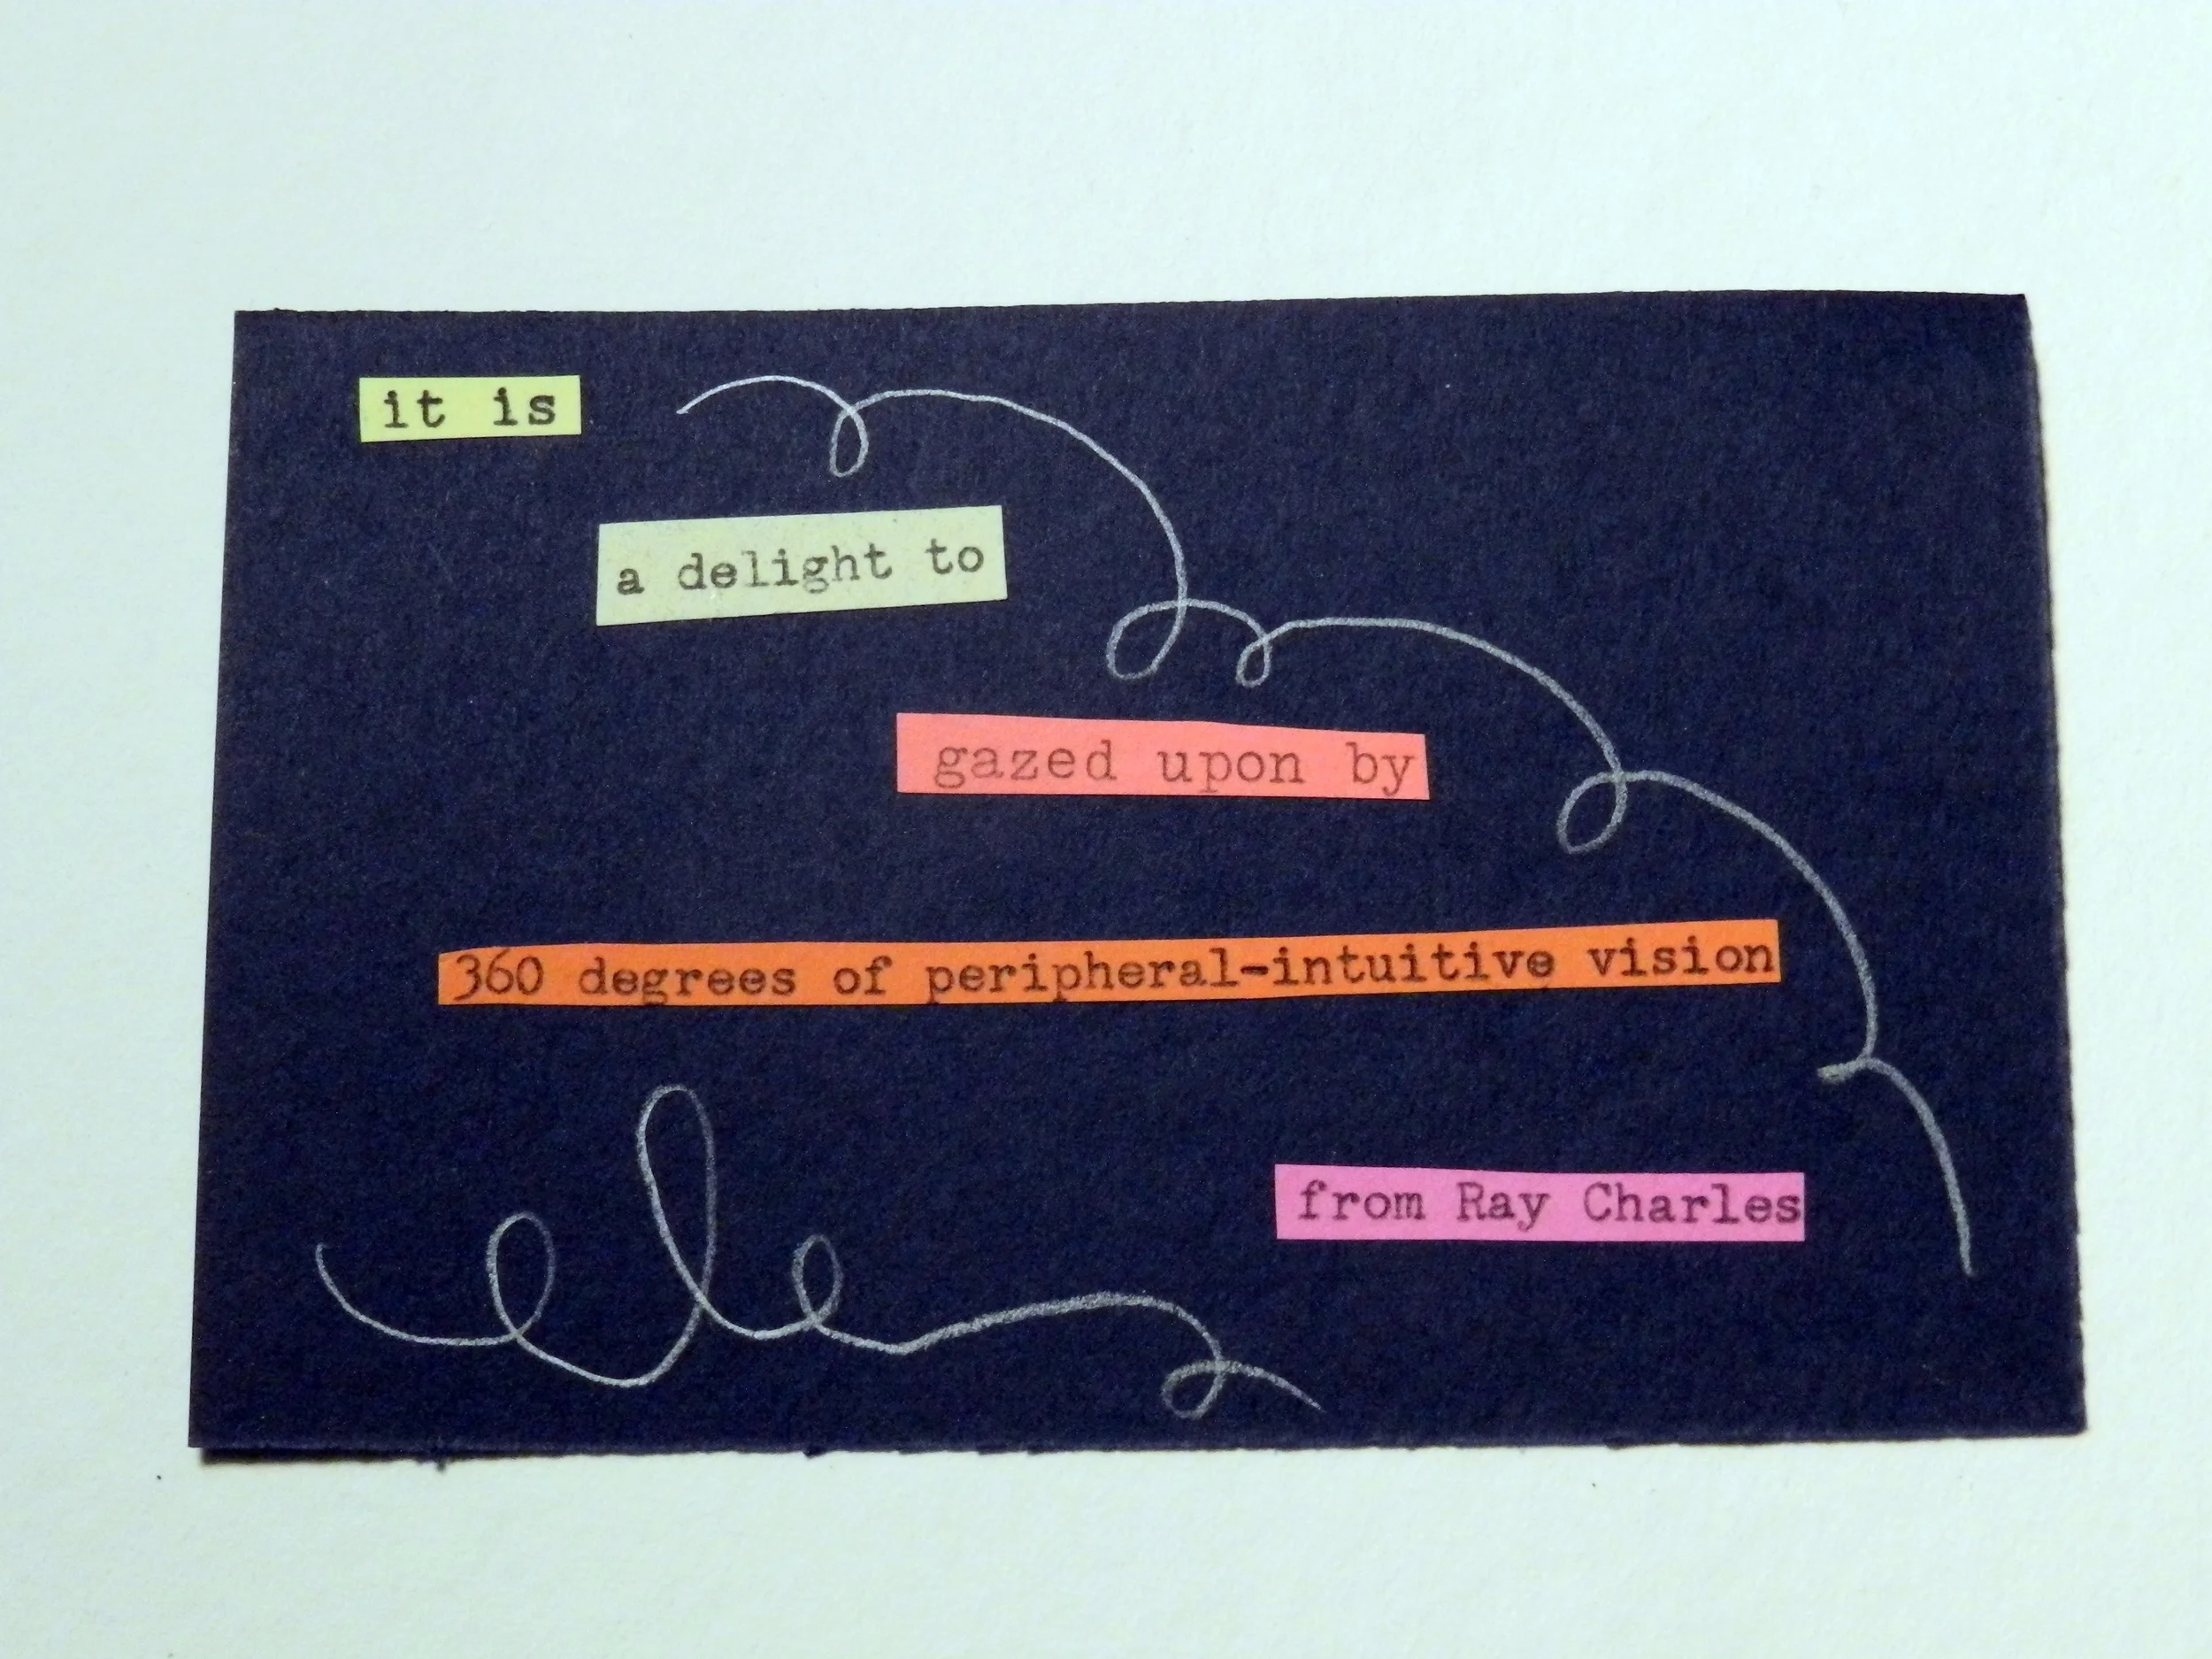 it is
a delight to
gazed upon by
360 degrees of peripheral-intuitive vision
from Ray Charles